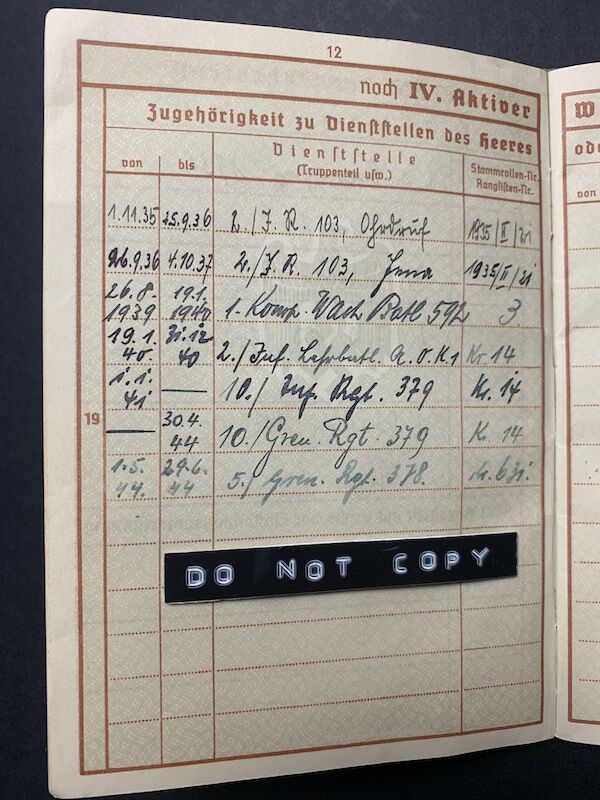 12
noch IV. Aktiver
Zugehörigkeit zu Dienststellen des Heeres
von bis Dienststelle (Truppenteil usw.) Stammrollen-Nr. Ranglisten-Nr.
1.11.35 25.9.36 2./J.R. 103, Ohrdruf 1935/II/21
26.9.36 4.10.37 2./J.R. 103, Jena 1935/II/21
26.8. 1939 19.1. 1940 1. Komp. Wach Batl 592 3
19.1. 40. 31.12 40 2./Inf. Lehrbatl. A.O.K 1 Kr. 14
1.1. 41 — 10./Inf. Rgt. 379 Kr. 14
19
— 30.4. 44 10./Gren. Rgt. 379 K. 14
1.5. 44. 29.6. 44 5./Gren. Rgt. 378.
DO NOT COPY
W
ode
von